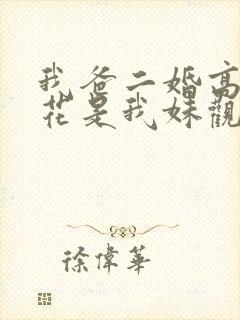 我爸二婚高
花是我妹觀
徐偉華